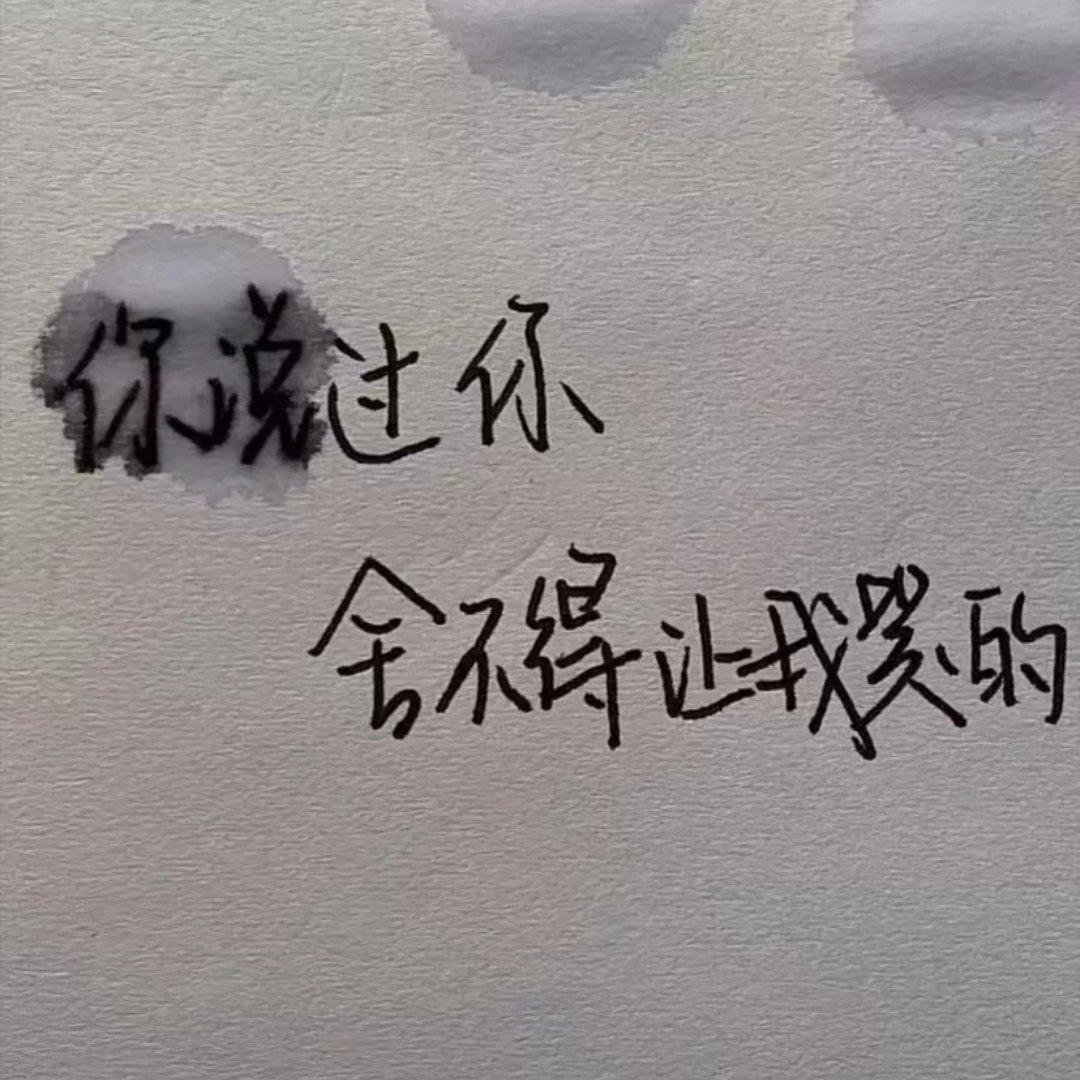 你说过你
舍不得让我哭的